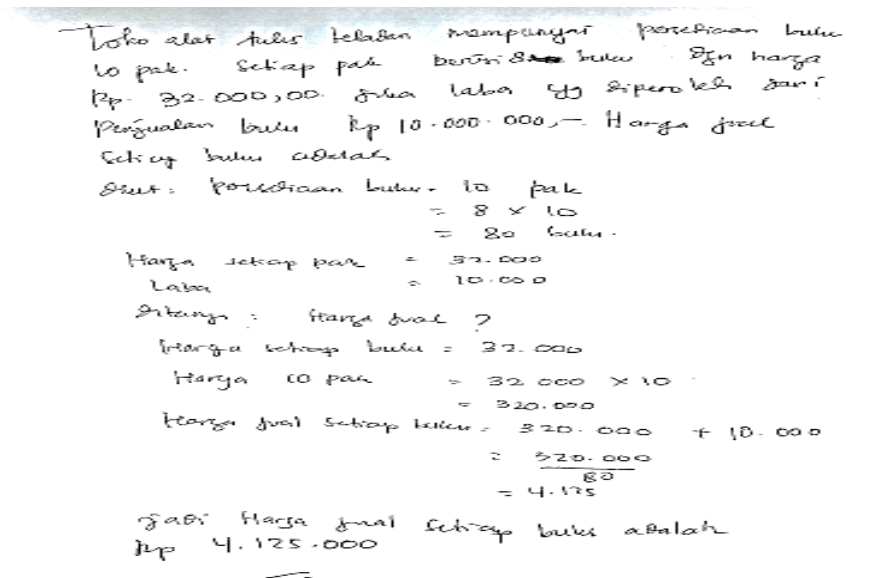 Toko alat tulis teladan mempunyai persediaan buku
10 pak. Setiap pak berisi 8 buku dgn harga
Rp. 32.000,00. jika laba yg diperoleh dari
Penjualan buku Rp 10.000.000,- Harga jual
Setiap buku adalah
persediaan buku = 10 pak
= 8 x 10
= 80 buku.
Harga setiap pak = 32.000
Laba = 10.000
Ditanya : Harga jual ?
Harga setiap buku = 32.000
Harga 10 pak = 32 000 x 10
= 320.000
Harga jual setiap buku = 320.000 + 10.000
= 320.000
80
= 4.125
jadi Harga jual setiap buku adalah
Rp 4.125.000